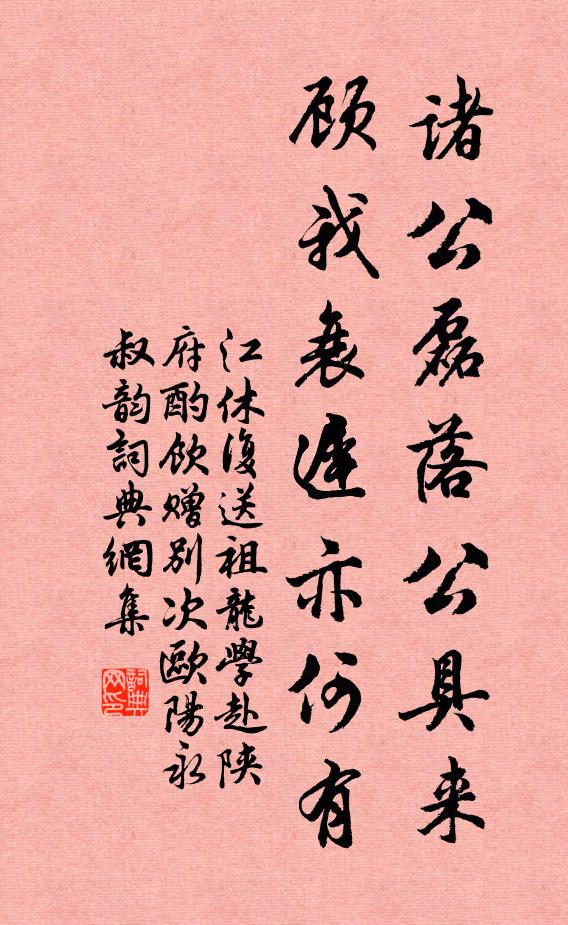 诸公磊落公具来
顾我衰迟亦何有
江休復送祖龍學赴陕
府酌饮赠别次歐陽永
叔韵詞典網集
詞典
网印